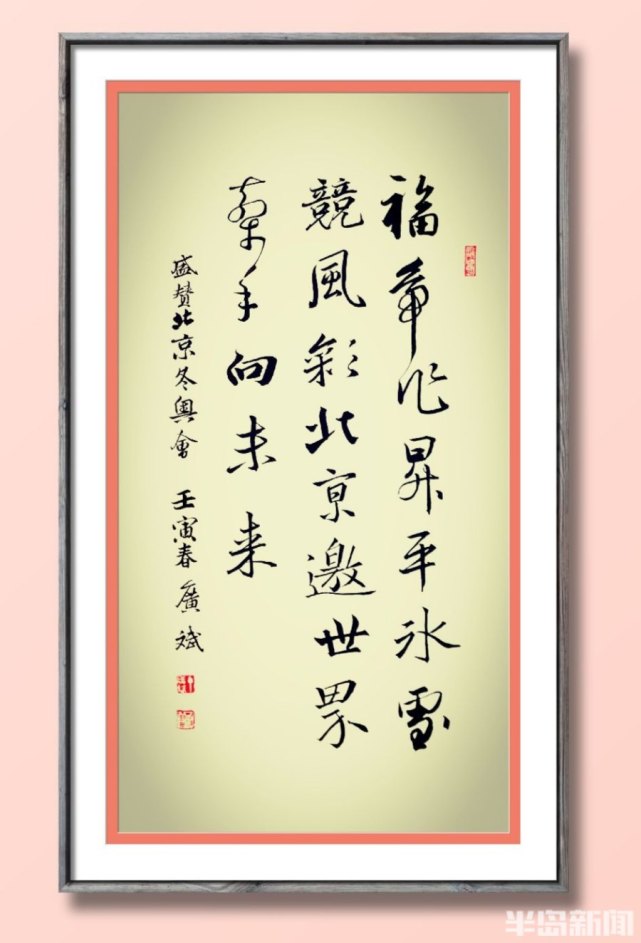 福昇平冰雪
競風彩北京邀世界
手向未来
盛赞北京冬奥會 壬寅春 廣斌
半岛新闻